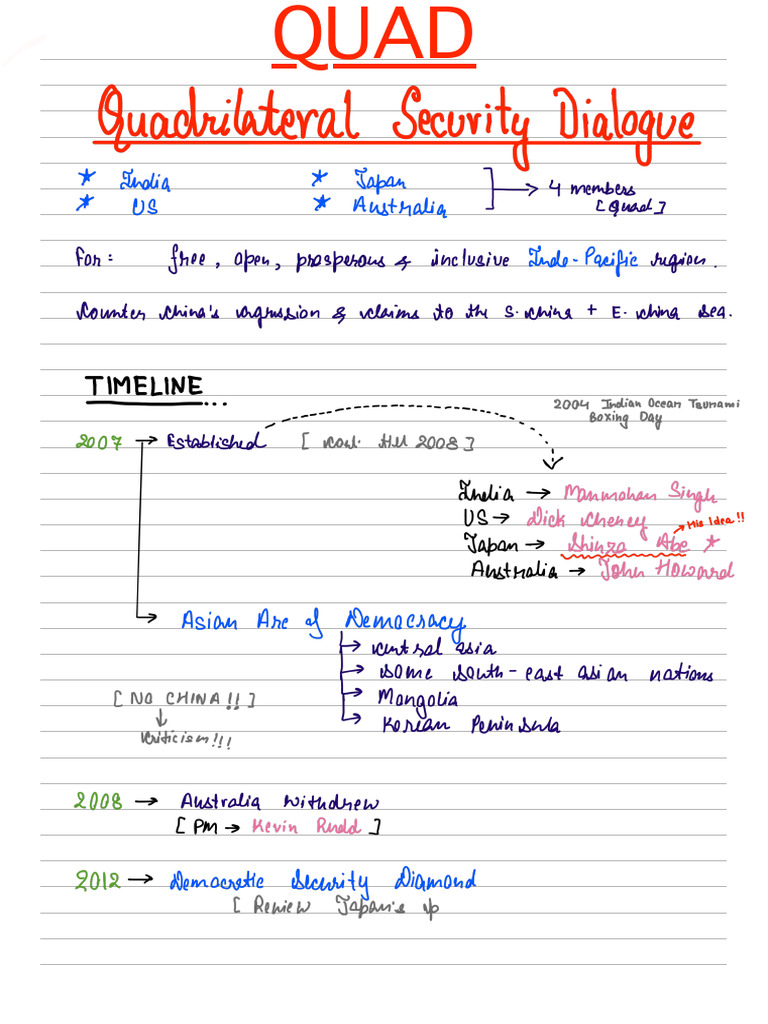 QUAD
Quadrilateral Security Dialogue
* India * Japan → 4 members
* US * Australia [Quad]
For: free, open, prosperous & inclusive Indo-Pacific region.
Counter China's agression & claims to the S. China + E. China sea.
TIMELINE...
2004 Indian Ocean Tsunami
Boxing Day
2007 → Established [cont. till 2008]
India → Manmohan Singh
US → Dick Cheney
→ His Idea!!
Japan → Shinzo Abe *
Australia → John Howard
→ Asian Arc of Democracy
→ Central asia
→ Some South-east asian nations
[NO CHINA!!] → Mongolia
→ Korean Peninsula
↓
Criticism!!!
2008 → Australia withdrew
[PM → Kevin Rudd]
2012 → Democratic Security Diamond
[Review Japan's